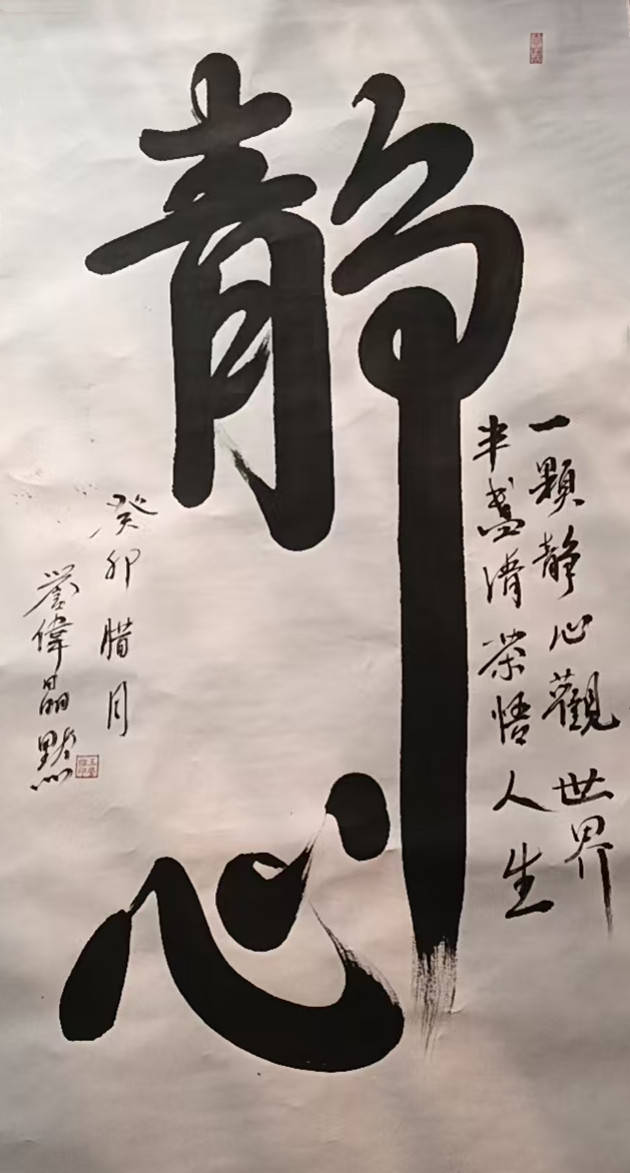 静心
一顆静心觀世界
半盞清茶悟人生
癸卯腊月
偉晶